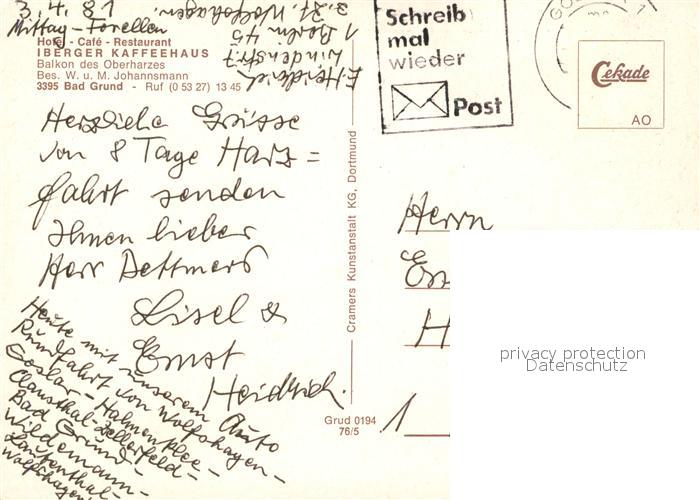 Mittag-Forellen
Hotel - Café - Restaurant
IBERGER KAFFEEHAUS
Balkon des Oberharzes
Bes. W. u. M. Johannsmann
3395 Bad Grund - Ruf (0 53 27) 13 45
E. Heidrich
Lindenstr. 7
1 Berlin 45
z. Zt. Wolfshagen.
Schreib
mal
wieder
Post
Cekade
AO
Herzliche Grüsse
von 8 Tage Harz=
fahrt senden
Ihnen lieber
Herr Dettmers
Lisel &
Ernst
Heidrich.
Heute mit unserem Auto
Rundfahrt von Wolfshagen-
Goslar-Hahnenklee-
Clausthal-Zellerfeld-
Bad Grund-
Wildemann-
Lautenthal-
Wolfshagen
Cramers Kunstanstalt KG, Dortmund
Grud 0194
76/5
Herrn
H
1
privacy protection
Datenschutz